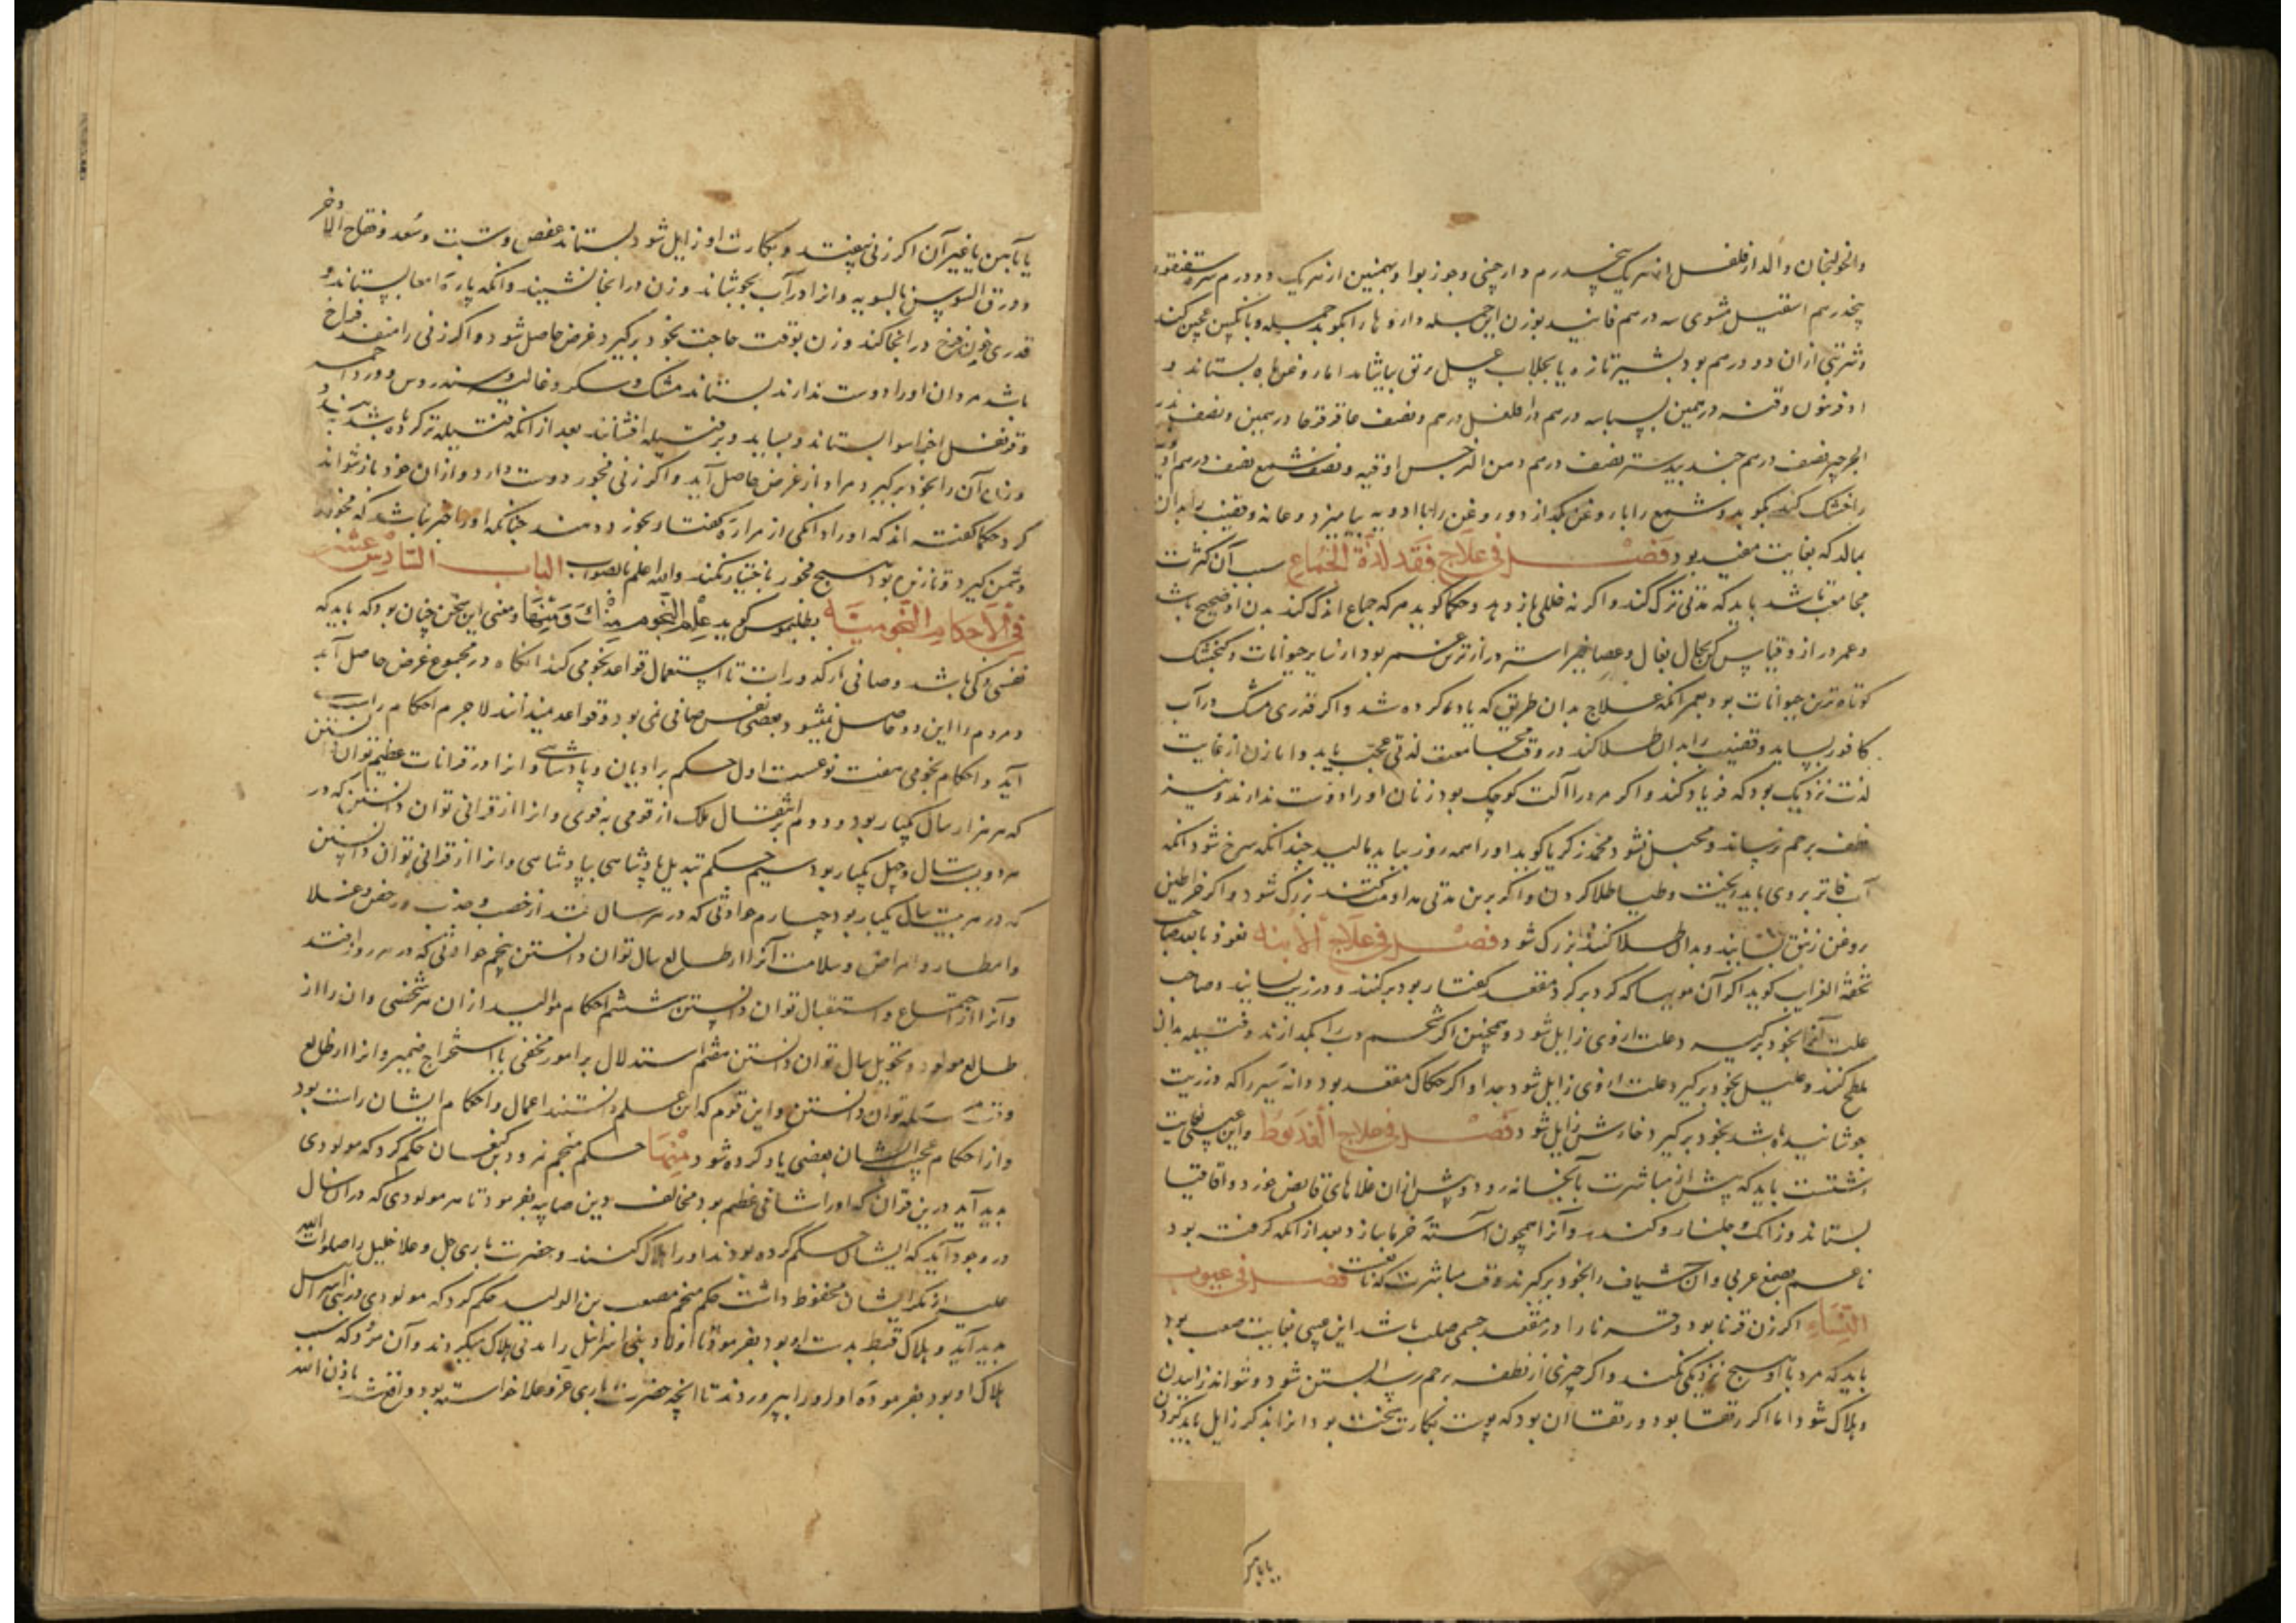 والخولنجان والدارفلفل از هر یک پنجدرم دارچینی وجوز بوا وبهمنین از هر یک دودرم سره سقنقور
پنجدرهم اسقیل مشوی سه درهم فانید بوزن این جمله داروها را بکوبد جمله وبانگبین عجین کند
وشربتی ازان دو درهم بود بشیر تازه یا بجلاب عسل رقیق بیاشامد اما روغنها بستاند
درهم عاقرقرحا درهمین ونصف
الجرجیر نصف درهم جندبیدستر نصف درهم ومن النرجس اوقیه ونصف شمع نصف درهم
را خشک کند بکوبد وشمع را با روغن بگدازد وروغن را با ادویه بیامیزد وعانه وقضیب را بدان
بمالد که بغایت مفید بود فصل فی علاج فقد لذة الجماع سبب آن کثرت
مجامعت باشد باید که مدتی ترک کند واگر نه خللی باز دهد وحکما گوید هر که جماع اندک کند بدن او صحیح باشد
وعمر دراز وقیاس بحال بغال وعصافیر است دراز ترین عمر بود از سایر حیوانات وگنجشک
کوتاه ترین حیوانات بود بعمر آنکه علاج بدان طریق که یاد کرده شد واگر قدری مشک در آب
کافور بساید وقضیب را بدان طلا کند در وقت مجامعت لذتی عجب یابد واما زن از غایت
لذت نزدیک بود که فریاد کند واگر مرد را آلت کوچک بود زنان او را دوست ندارند ونیز
نطفه برحم نرساند ومحبل نشود محمد زکریا گوید او را همه روز بباید مالید چندانکه سرخ شود آنکه
آب فاتر بر وی باید ریخت وطلا کردن واگر برین مدتی مداومت کنند بزرگ شود واگر خراطین
بروغن زنبق بسایند وبدان طلا کنند بزرگ شود فصل فی علاج الأبنه نعوذ بالله صاحب
تحفة الغرایب گوید اگر آن مویها که گرد بر گرد مقعد کفتار بود برکنند ودر زیت بسایند وصاحب
علت آنرا بخود برگیرد علت از وی زایل شود وهمچنین اگر شحم دب را بگدازند وفتیله بدان
ملطخ کنند وعلیل بخود برگیرد علت از وی زایل شود جدا واگر حکاک مقعد بود دانه سیر را که در زیت
جوشانیده باشد بخود برگیرد خارش زایل شود فصل فی علاج العذیوط واین عیب بغایت
زشتست باید که پیش از مباشرت بآبخانه رود وپیش ازان غذاهای قابض خورد واقاقیا
بستاند وزاک وجلنار وکندر وآنرا همچون استه خرما بسازد بعد از آنکه کوفته بود
ناعم بصمغ عربی وآن شیاف را بخود برگیرند وقت مباشرت که نافعست فصل فی عیوب
النساء اگر زن قرنا بود وقرنا را در مقعد جسمی صلب باشد این عیبی بغایت صعب بود
باید که مرد با او هیچ نزدیکی نکند واگر چیزی از نطفه برحم رسد آبستن شود ونتواند زاییدن
وهلاک شود اما اگر رتقا بود ورتقا آن بود که پوست بکارت سخت بود انرا بذکر زایل باید کردن
یا بآهن
یا بآهن یا غیر آن اگر زنی بیفتد وبکارت او زایل شود بستاند عفص وشبت وسعد وفقاح الاذخر
وورق السوسن بالسویه وانرا در آب بجوشاند وزن در آنجا نشیند وآنکه پارهٔ امعا بستاند و
قدری خون فرخ در آنجا کند وزن بوقت حاجت بخود برگیرد غرض حاصل شود واگر زنی را منفذ فراخ
باشد مردان او را دوست ندارند بستاند مشک وسک وغالیه وسندروس وورد احمر
وقرنفل اجزا سوا بستاند وبساید وبر فتیله افشاند بعد از آنکه فتیله تر کرده باشد
وزن آن را بخود برگیرد مراد از غرض حاصل آید واگر زنی فجور دوست دارد وازان خود باز نتواند
کرد حکما گفته اند که او را دانگی از مرارهٔ کفتار بخورد دهند چنانکه او را خبر نباشد که فجور
دشمن گیرد وتا زنده بود هیچ فجور باختیار نکند والله اعلم بالصواب الباب السادس عشر
فی الاحکام النجومیّه بطلمیوس گوید علم النجوم منک ومنها ومعنی این سخن چنان بود که باید که
نفسی زکی باشد وصافی از کدورات تا استعمال قواعد نجومی کند آنگاه در مجموع غرض حاصل آید
ومردم را این دو حاصل نمیشود بعضی نفس صافی نمی بود وقواعد میدانند لاجرم احکام راست
آید واحکام نجومی هفت نوعست اول حکم بر ادیان وپادشاهی وانرا در قرانات عظیم توان دانستن
که هر هزار سال یکبار بود ودوم بر انتقال ملک از قومی بقومی وانرا از قرانی توان دانستن که در
هر دویست سال وچهل یکبار بود سیم حکم تبدیل پادشاهی بپادشاهی وانرا از قرانی توان دانستن
که در هر بیست سال یکبار بود چهارم حوادثی که در هر سال افتد از خصب وجدب ورخص وغلا
وامطار وامراض وسلامت آنرا از طالع سال توان دانستن پنجم حوادثی که در هر روز افتد
وآنرا از اجتماع واستقبال توان دانستن ششم احکام موالید ازان هر شخصی وان را از
طالع مولود وتحویل سال توان دانستن هفتم استدلال بر امور مخفی یا استخراج ضمیر وانرا از طالع
وقت مسئله توان دانستن واین قوم که این علم دانستند اعمال واحکام ایشان راست بود
واز احکام عجب ایشان بعضی یاد کرده شود منها حکم منجم نمرود بن کنعان حکم کرد که مولودی
پدید آید درین قران که او را شانی عظیم بود مخالف دین صابیه بفرمود تا هر مولودی که در ان سال
در وجود آید که ایشان حکم کرده بودند او را هلاک کنند وحضرت باری جل وعلا خلیل را صلوات الله
علیه از مکر ایشان محفوظ داشت حکم منجم مصعب بن الولید حکم کرد که مولودی در بنی اسرائیل
پدید آید وهلاک قبط بدست او بود بفرمود تا اولاد بنی اسرائیل را مدتی هلاک میکردند وآن مرد که سبب
هلاک او بود بفرموده او او را بپروردند تا آنچه حضرت باری عز وعلا خواسته بود واقع شد باذن الله